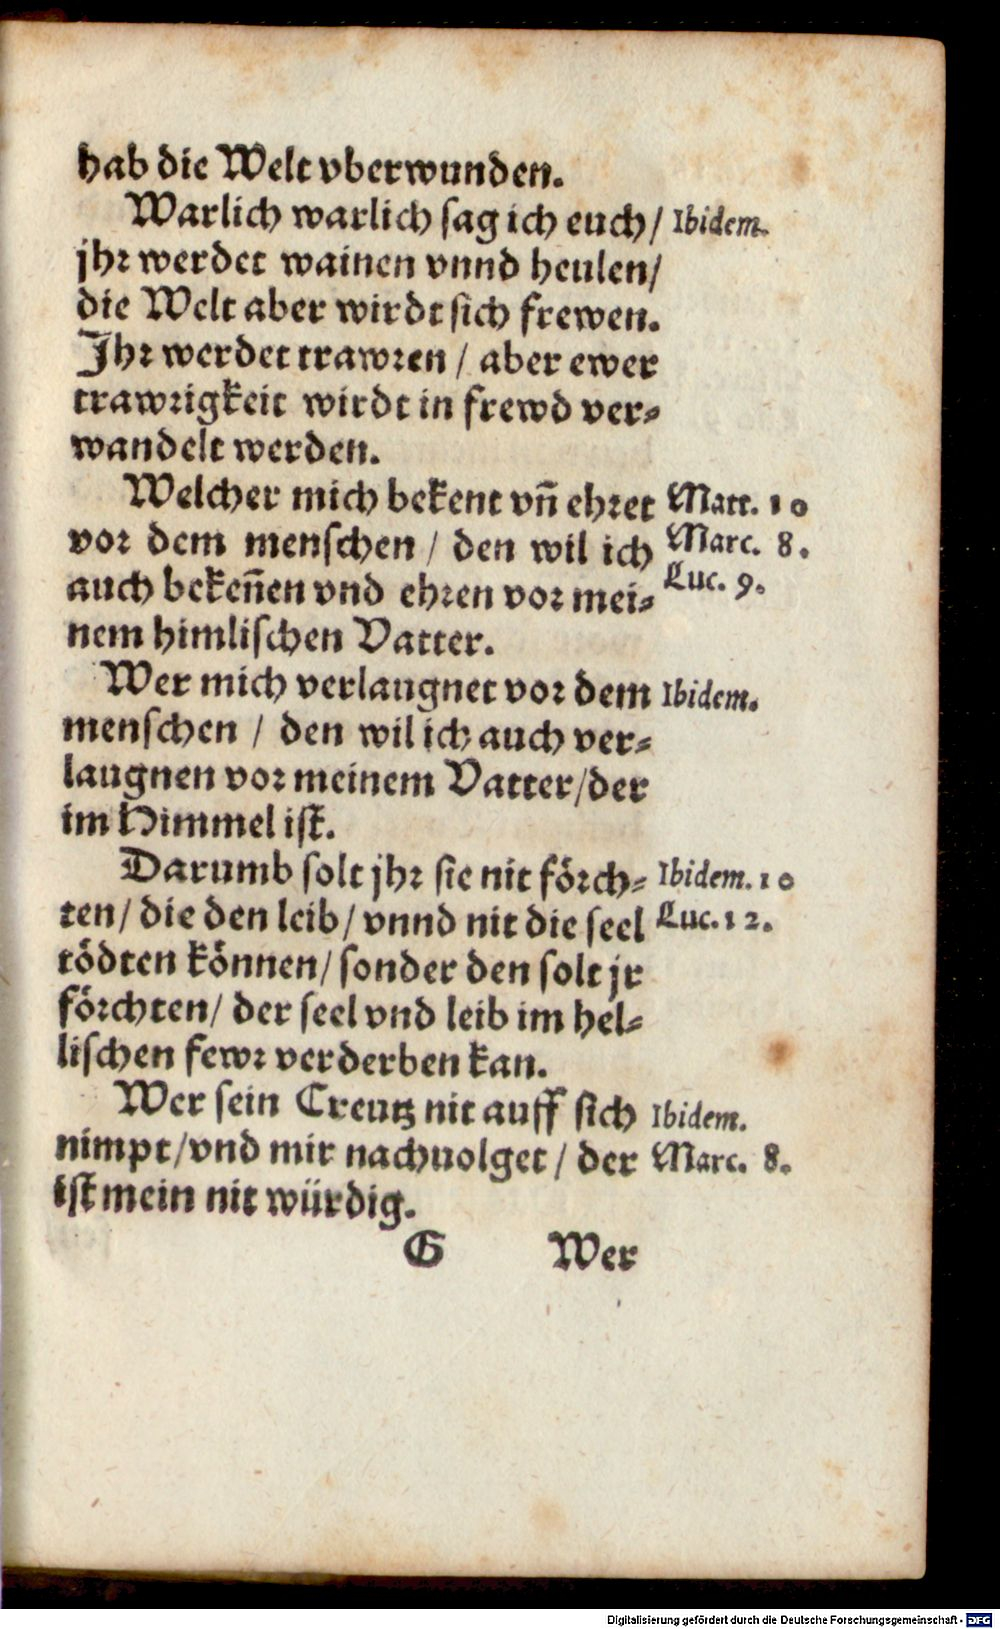 hab die Welt vberwunden.
Warlich warlich sag ich euch/ Ibidem.
jhr werdet wainen vnnd heulen/
die Welt aber wirdt sich frewen.
Ihr werdet trawren / aber ewer
trawrigkeit wirdt in frewd ver-
wandelt werden.
Welcher mich bekent vñ ehret Matt. 10
vor dem menschen / den wil ich Marc. 8.
auch bekeñen vnd ehren vor mei- Luc. 9.
nem himlischen Vatter.
Wer mich verlaugnet vor dem Ibidem.
menschen / den wil ich auch ver-
laugnen vor meinem Vatter/der
im Himmel ist.
Darumb solt jhr sie nit förch- Ibidem. 10
ten/ die den leib/ vnnd nit die seel Luc. 12.
tödten können/ sonder den solt jr
förchten/ der seel vnd leib im hel-
lischen fewr verderben kan.
Wer sein Creutz nit auff sich Ibidem.
nimpt/vnd mir nachuolget / der Marc. 8.
ist mein nit würdig.
G Wer
Digitalisierung gefördert durch die Deutsche Forschungsgemeinschaft - DFG